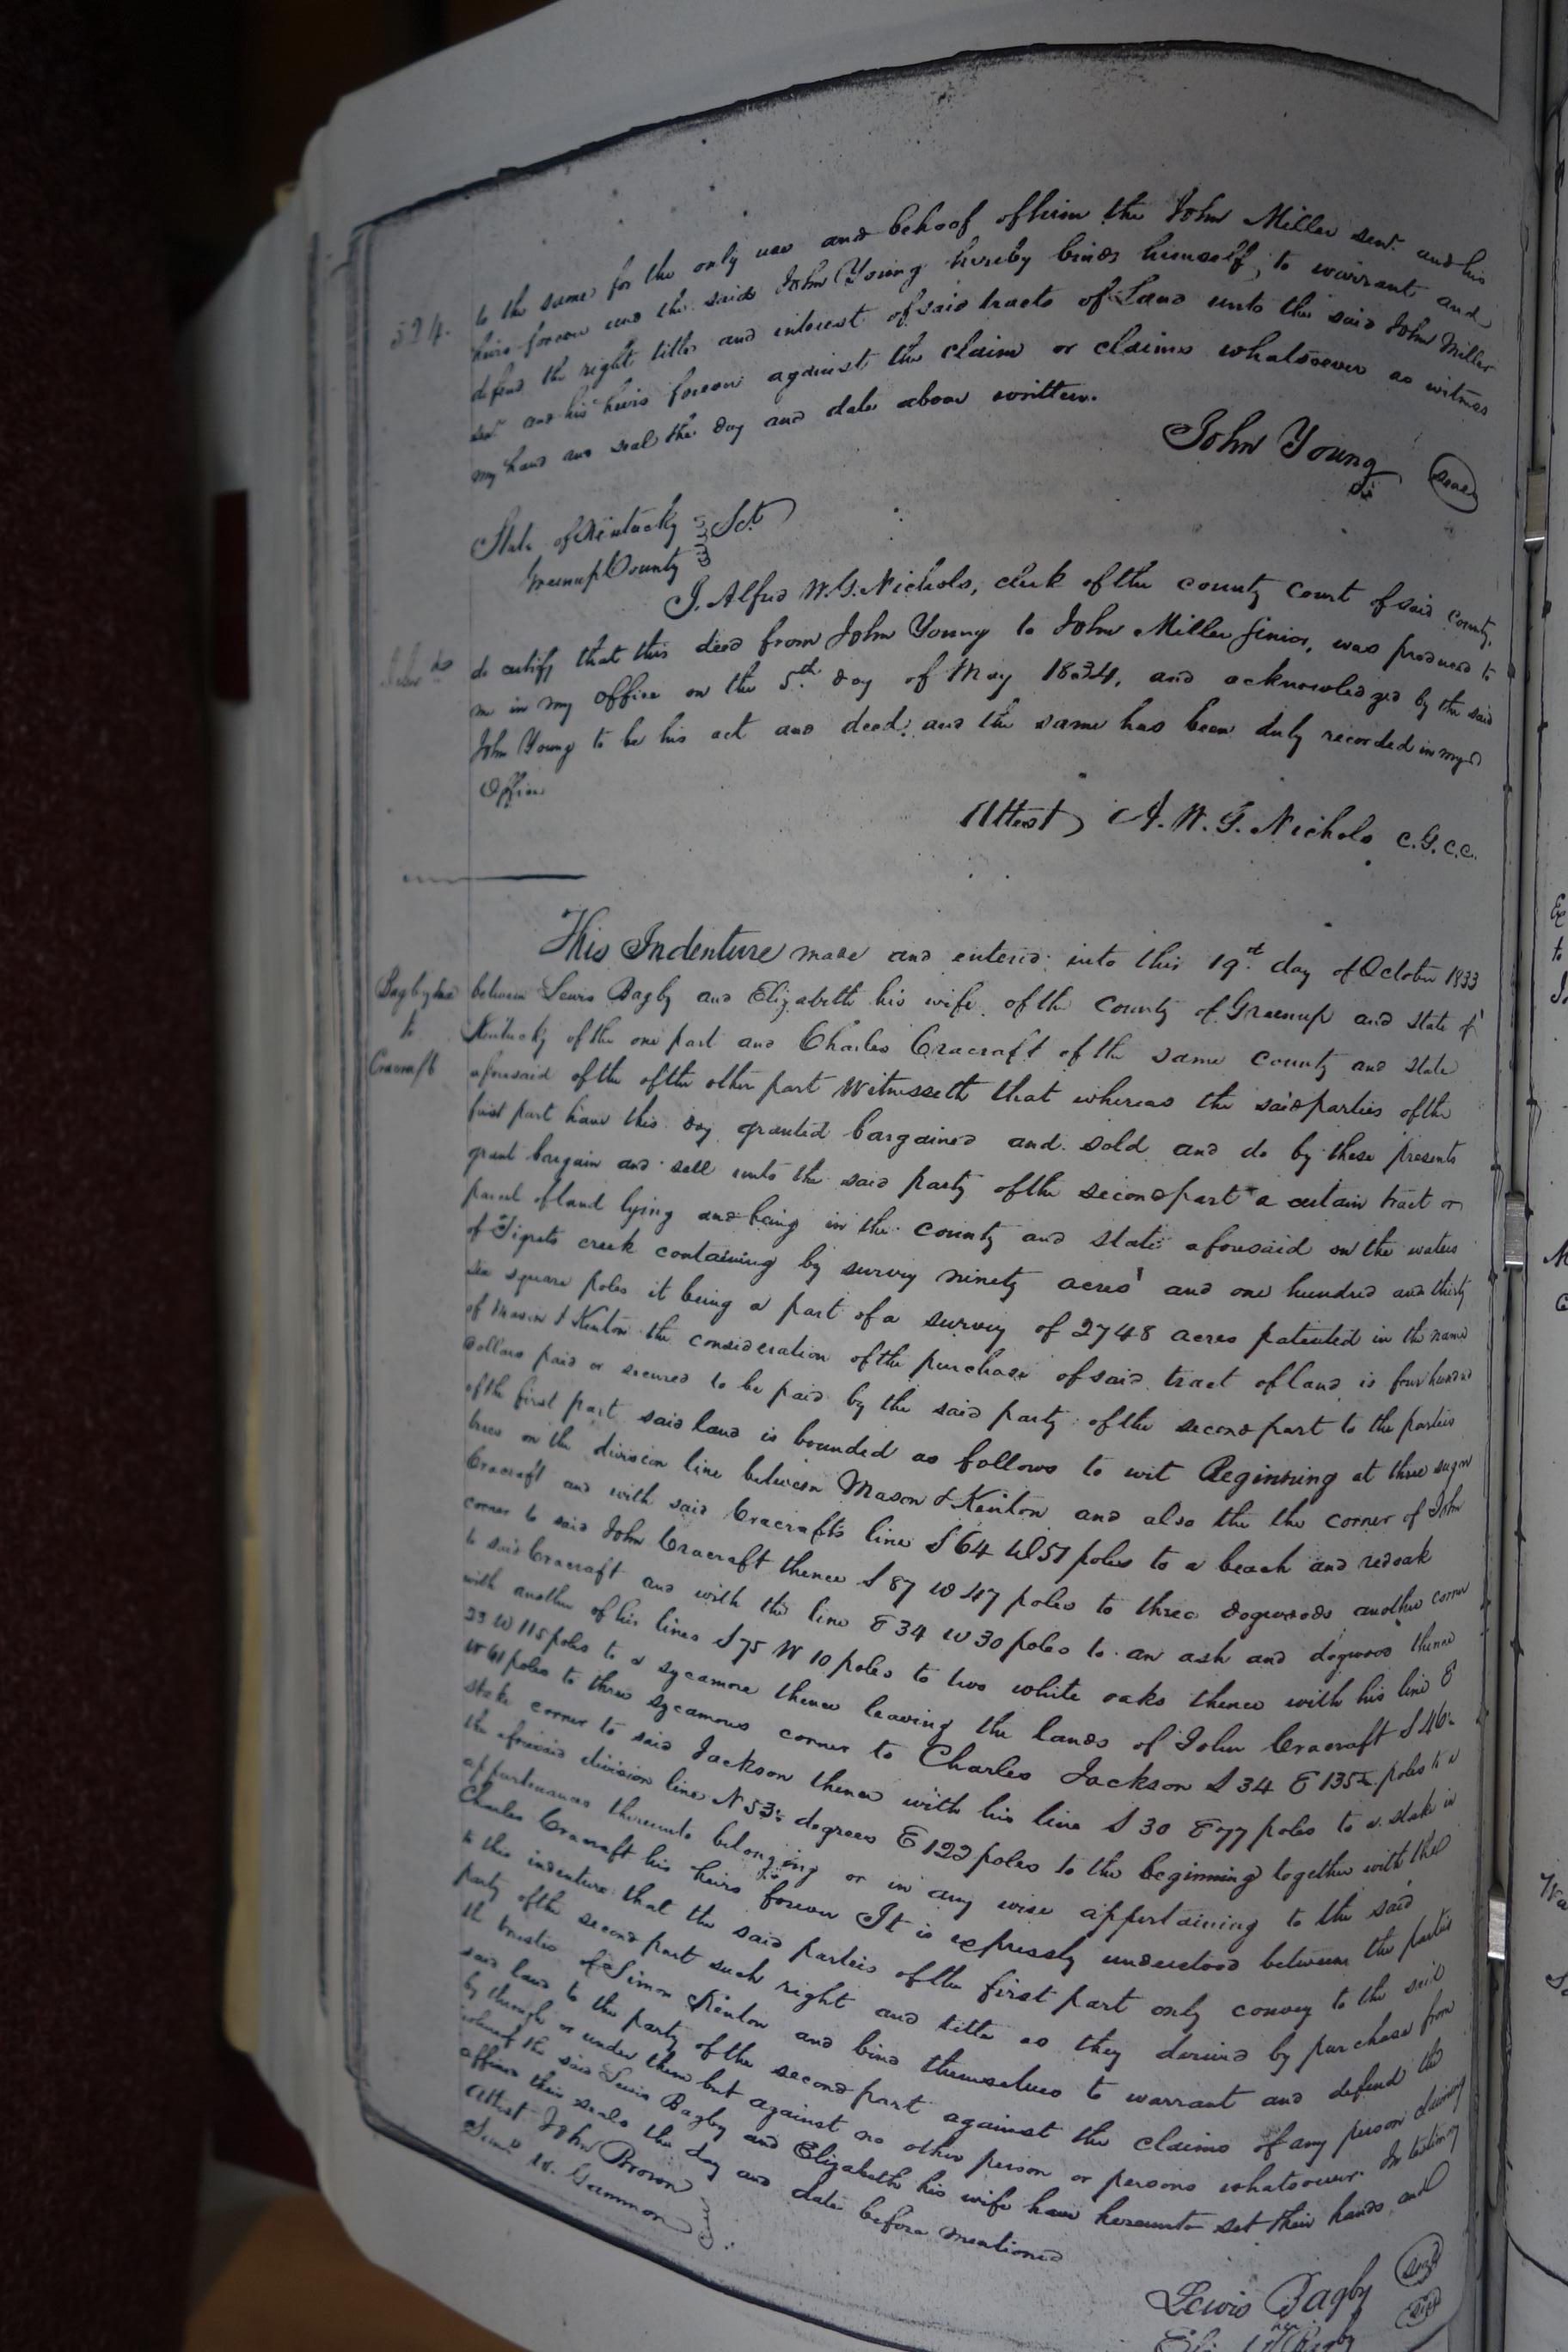 524.
to the same for the only use and behoof of him the John Miller senr. and his
heirs forever and the said John Young hereby binds himself, to warrant and
defend the right title and interest of said tracts of Land unto the said John Miller
senr. and his heirs forever against the claim or claims whatsoever as witness
my hand and seal the day and date above written.
John Young seal
State of Kentucky
Greenup County Sct
I, Alfred W. G. Nichols, clerk of the county court of said county,
do certify that this deed from John Young to John Miller sinior, was produced to
me in my office on the 5th day of May 1834, and acknowledged by the said
John Young to be his act and deed, and the same has been duly recorded in my
Office
Attest, A. W. G. Nichols C.G.C.C.
This Indenture made and entered into this 19th day of October 1833
Bagby
to
Cracraft
between Lewis Bagby and Elizabeth his wife of the county of Greenup and state of
Kentucky of the one part and Charles Cracraft of the same county and state
aforesaid of the of the other part Witnesseth that whereas the said parties of the
first part have this day granted bargained and sold and do by these presents
grant bargain and sell unto the said party of the second part a certain tract or
parcel of land lying and being in the county and state aforesaid on the waters
of Tigerts creek containing by survey ninety acres and one hundred and thirty
six square poles it being a part of a survey of 2748 acres patented in the name
of Mason & Kenton the consideration of the purchase of said tract of land is four hundred
dollars paid or secured to be paid by the said party of the second part to the parties
of the first part said land is bounded as follows to wit Beginning at three sugar
trees on the division line between Mason & Kenton and also the the corner of John
Cracraft and with said Cracrafts line S 64 W 51 poles to a beach and redoak
corner to said John Cracraft thence S 87 W 47 poles to three dogwoods another corner
to said Cracraft and with the line S 34 W 30 poles to an ash and dogwood thence
with another of his lines S 75 W 10 poles to two white oaks thence with his line S
23 W 115 poles to a sycamore thence leaving the lands of John Cracraft S 46
W 61 poles to three sycamores corner to Charles Jackson S 34 E 135 poles to a
stake corner to said Jackson thence with his line S 30 E 77 poles to a stake in
the aforesaid division line N 53½ degrees E 122 poles to the beginning together with the
appertinances thereunto belonging or in any wise appertaining to the said
Charles Cracraft his heirs forever It is expressly understood between the parties
to this indenture that the said parties of the first part only convey to the said
party of the second part such right and title as they derived by purchase from
the trustees of Simon Kenton and bind themselves to warrant and defend the
said land to the party of the second part against the claims of any person claiming
by through or under them but against no other person or persons whatsoever. In testimony
whereof the said Lewis Bagby and Elizabeth his wife have hereunto set their hands and
affixed their seals the day and date before mentioned
Attest John Brown
Saml. W. Gammon
Lewis Bagby seal
Bagby seal